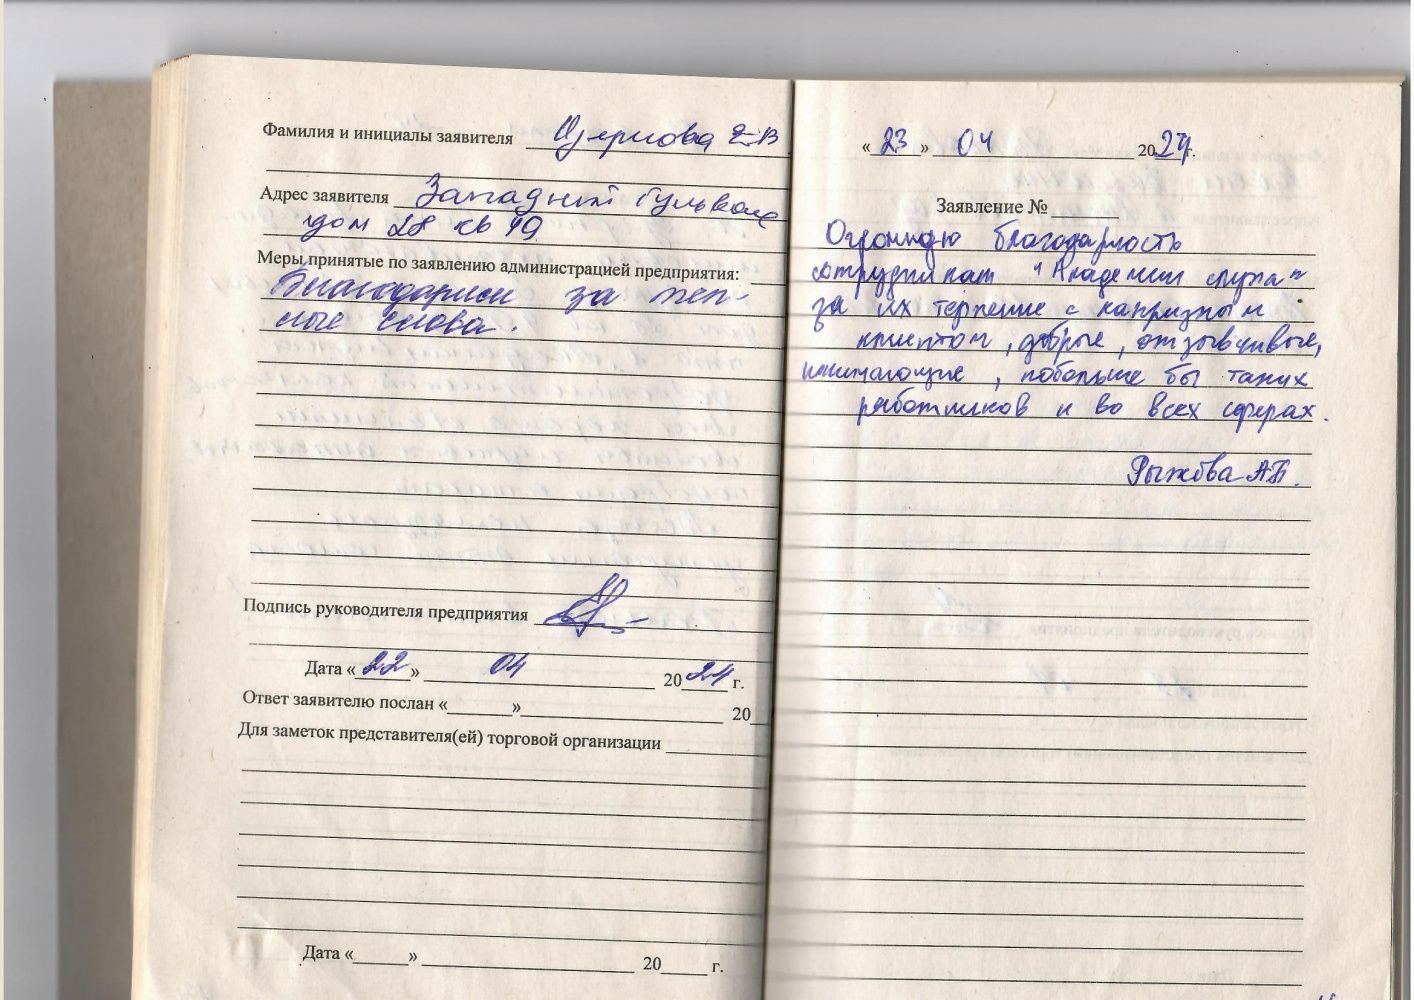 Фамилия и инициалы заявителя
Адрес заявителя Западный бульвар
дом 28 кв 19
Меры принятые по заявлению администрацией предприятия:
Благодарим за теп-
лые слова.
Подпись руководителя предприятия
Дата «22» 04 2024 г.
Ответ заявителю послан «______»__________ 20
Для заметок представителя(ей) торговой организации
Дата «______» __________ 20_____ г.
«23» 04 2024г.
Заявление №
Огромную благодарность
сотрудникам "Академии слуха"
за их терпение с капризным
клиентом, добрые, отзывчивые,
понимающие, побольше бы таких
работников и во всех сферах.
Рыжова А.Б.